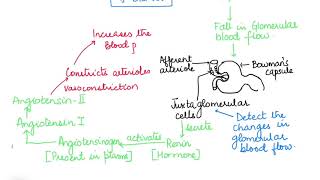 Fall in Glomerular
blood flow.
Increases the
blood p
Afferent
arteriole
Bowman's
capsule
Constricts arterioles
vasoconstriction
Angiotensin-II
Juxtaglomerular
cells
Detect the
changes in
glomerular
blood flow.
secrete
Angiotensin I
Angiotensinogen
activates
Renin
[Present in plasma]
[Hormone]